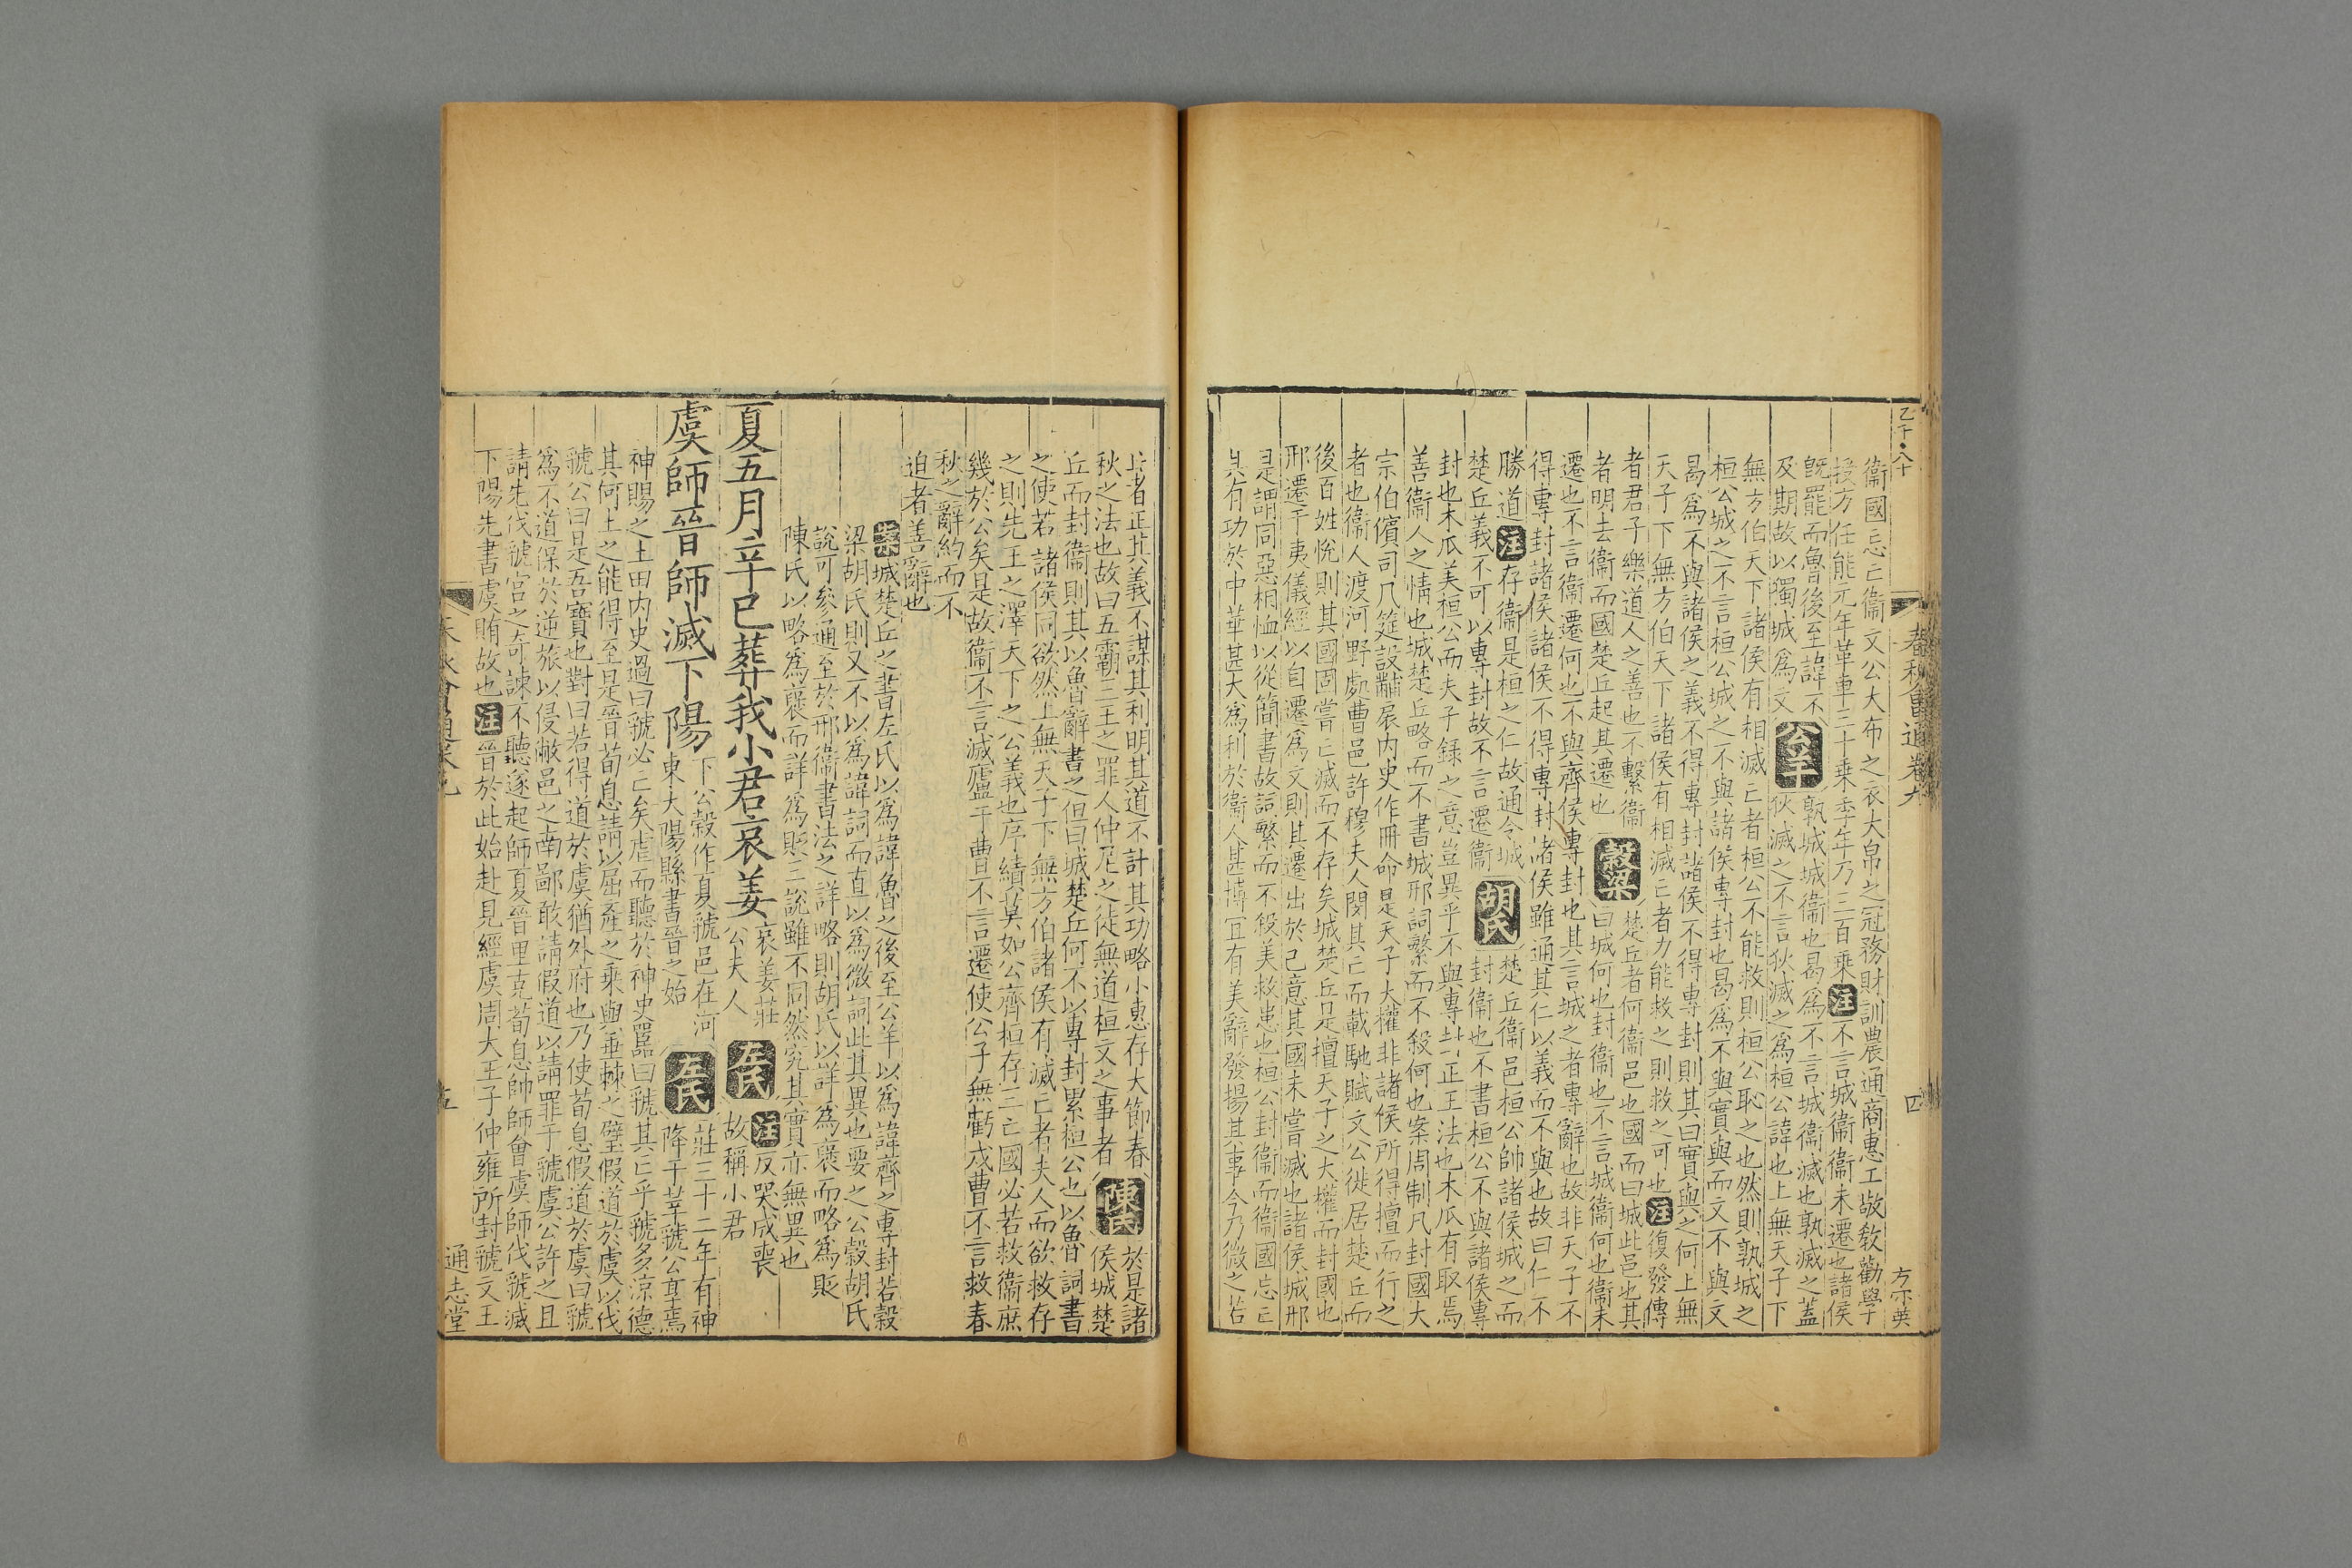 乙丁八十
春秋會通卷九
四
方不英
衞國忘亡衞文公大布之衣大帛之冠務財訓農通商惠工敬敎勸學
授方任能元年革車三十乘季年乃三百乘注不言城衞衞未遷也諸侯
旣罷而魯後至諱不
及期故以獨城爲文公羊孰城城衞也曷爲不言城衞滅也孰滅之蓋
狄滅之不言狄滅之爲桓公諱也上無天子下
無方伯天下諸侯有相滅亡者桓公不能救則桓公恥之也然則孰城之
桓公城之不言桓公城之不與諸侯專封也曷爲不與實與而文不與文
曷爲不與諸侯之義不得專封諸侯不得專封則其曰實與之何上無
天子下無方伯天下諸侯有相滅亡者力能救之則救之可也注復發傳
者君子樂道人之善也不繫衞
者明去衞而國楚丘起其遷也穀梁楚丘者何衞邑也國而曰城此邑也其
曰城何也封衞也不言城衞何也衞未
遷也不言衞遷何也不與齊侯專封也其言城之者專辭也故非天子不
得專封諸侯諸侯不得專封諸侯雖通其仁以義而不與也故曰仁不
勝道注存衞是桓之仁故通令城
楚丘義不可以專封故不言遷衞胡氏楚丘衞邑桓公帥諸侯城之而
封衞也不書桓公不與諸侯專
封也木瓜美桓公而夫子錄之意豈異乎不與專封正王法也木瓜有取焉
善衞人之情也城楚丘略而不書城邢詞繁而不殺何也案周制凡封國大
宗伯儐司几筵設黼扆內史作冊命是天子大權非諸侯所得擅而行之
者也衞人渡河野處曹邑許穆夫人閔其亡而載馳賦文公徙居楚丘而
後百姓悅則其國固嘗亡滅而不存矣城楚丘是擅天子之大權而封國也
邢遷于夷儀經以自遷爲文則其遷出於己意其國未嘗滅也諸侯城邢
是謂同惡相恤以從簡書故詞繁而不殺美救患也桓公封衞而衞國忘亡
其有功於中華甚大爲利於衞人甚博宜有美辭發揚其事今乃微之若
此者正其義不謀其利明其道不計其功略小惠存大節春
秋之法也故曰五霸三王之罪人仲尼之徒無道桓文之事者陳氏於是諸
侯城楚
丘而封衞則其以魯辭書之但曰城楚丘何不以專封累桓公也以魯詞書
之使若諸侯同欲然上無天子下無方伯諸侯有滅亡者夫人而欲救存
之則先王之澤天下之公義也序績莫如公齊桓存三亡國必若救衞庶
幾於公矣是故衞不言滅廬于曹不言遷使公子無虧戍曹不言救春
秋之辭約而不
迫者善辭也
案城楚丘之書左氏以爲諱魯之後至公羊以爲諱齊之專封若穀
梁胡氏則又不以爲諱詞而直以爲微詞此其異也要之公穀胡氏
說可參通至於邢衞書法之詳略則胡氏以詳爲褒而略爲貶
陳氏以略爲褒而詳爲貶二說雖不同然究其實亦無異也
夏五月辛巳葬我小君哀姜哀姜莊
公夫人左氏注反哭成喪
故稱小君
虞師晉師滅下陽下公穀作夏虢邑在河
東大陽縣書晉之始左氏莊三十二年有神
降于莘虢公享焉
神賜之土田內史過曰虢必亡矣虐而聽於神史嚚曰虢其亡乎虢多涼德
其何土之能得至是晉荀息請以屈產之乘與垂棘之璧假道於虞以伐
虢公曰是吾寶也對曰若得道於虞猶外府也乃使荀息假道於虞曰虢
爲不道保於逆旅以侵敝邑之南鄙敢請假道以請罪于虢虞公許之且
請先伐虢宮之奇諫不聽遂起師夏晉里克荀息帥師會虞師伐虢滅
下陽先書虞賄故也注晉於此始赴見經虞周大王子仲雍所封虢文王
五
通志堂